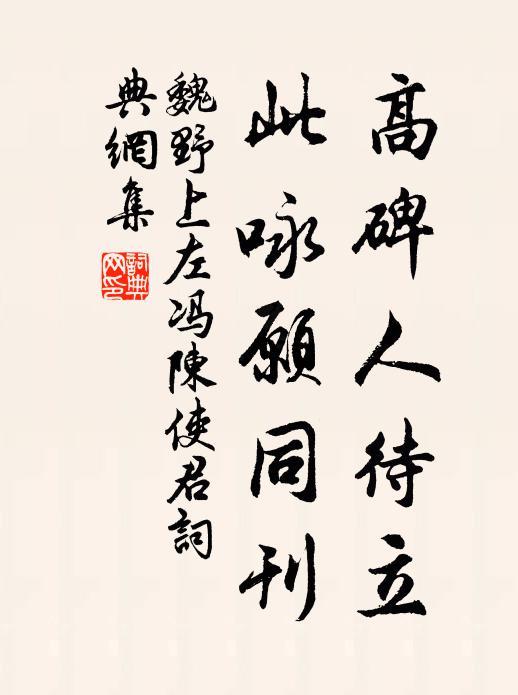 高碑人待立
此咏願同刊
魏野上左冯陳使君詞
典網集
詞典
网印